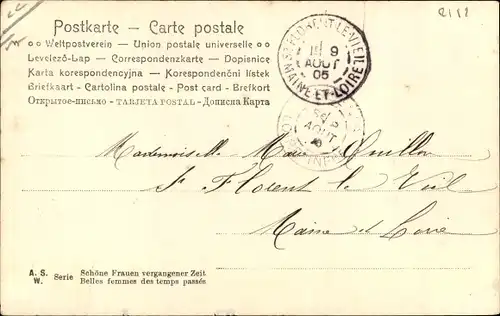 Postkarte – Carte postale
Weltpostverein – Union postale universelle
Levelező-Lap – Correspondenzkarte – Dopisnice
Karta korespondencyjna – Korespondenční lístek
Briefkaart – Cartolina postale – Post card – Brefkort
Открытое-письмо – TARJETA POSTAL – Дописна Карта
ST FLORENT-LE-VIEIL
9
AOUT
05
MAINE-ET-LOIRE
AOUT
Mademoiselle Marie
St Florent le Vieil
Maine et Loire
A. S. W. Serie
Schöne Frauen vergangener Zeit
Belles femmes des temps passés